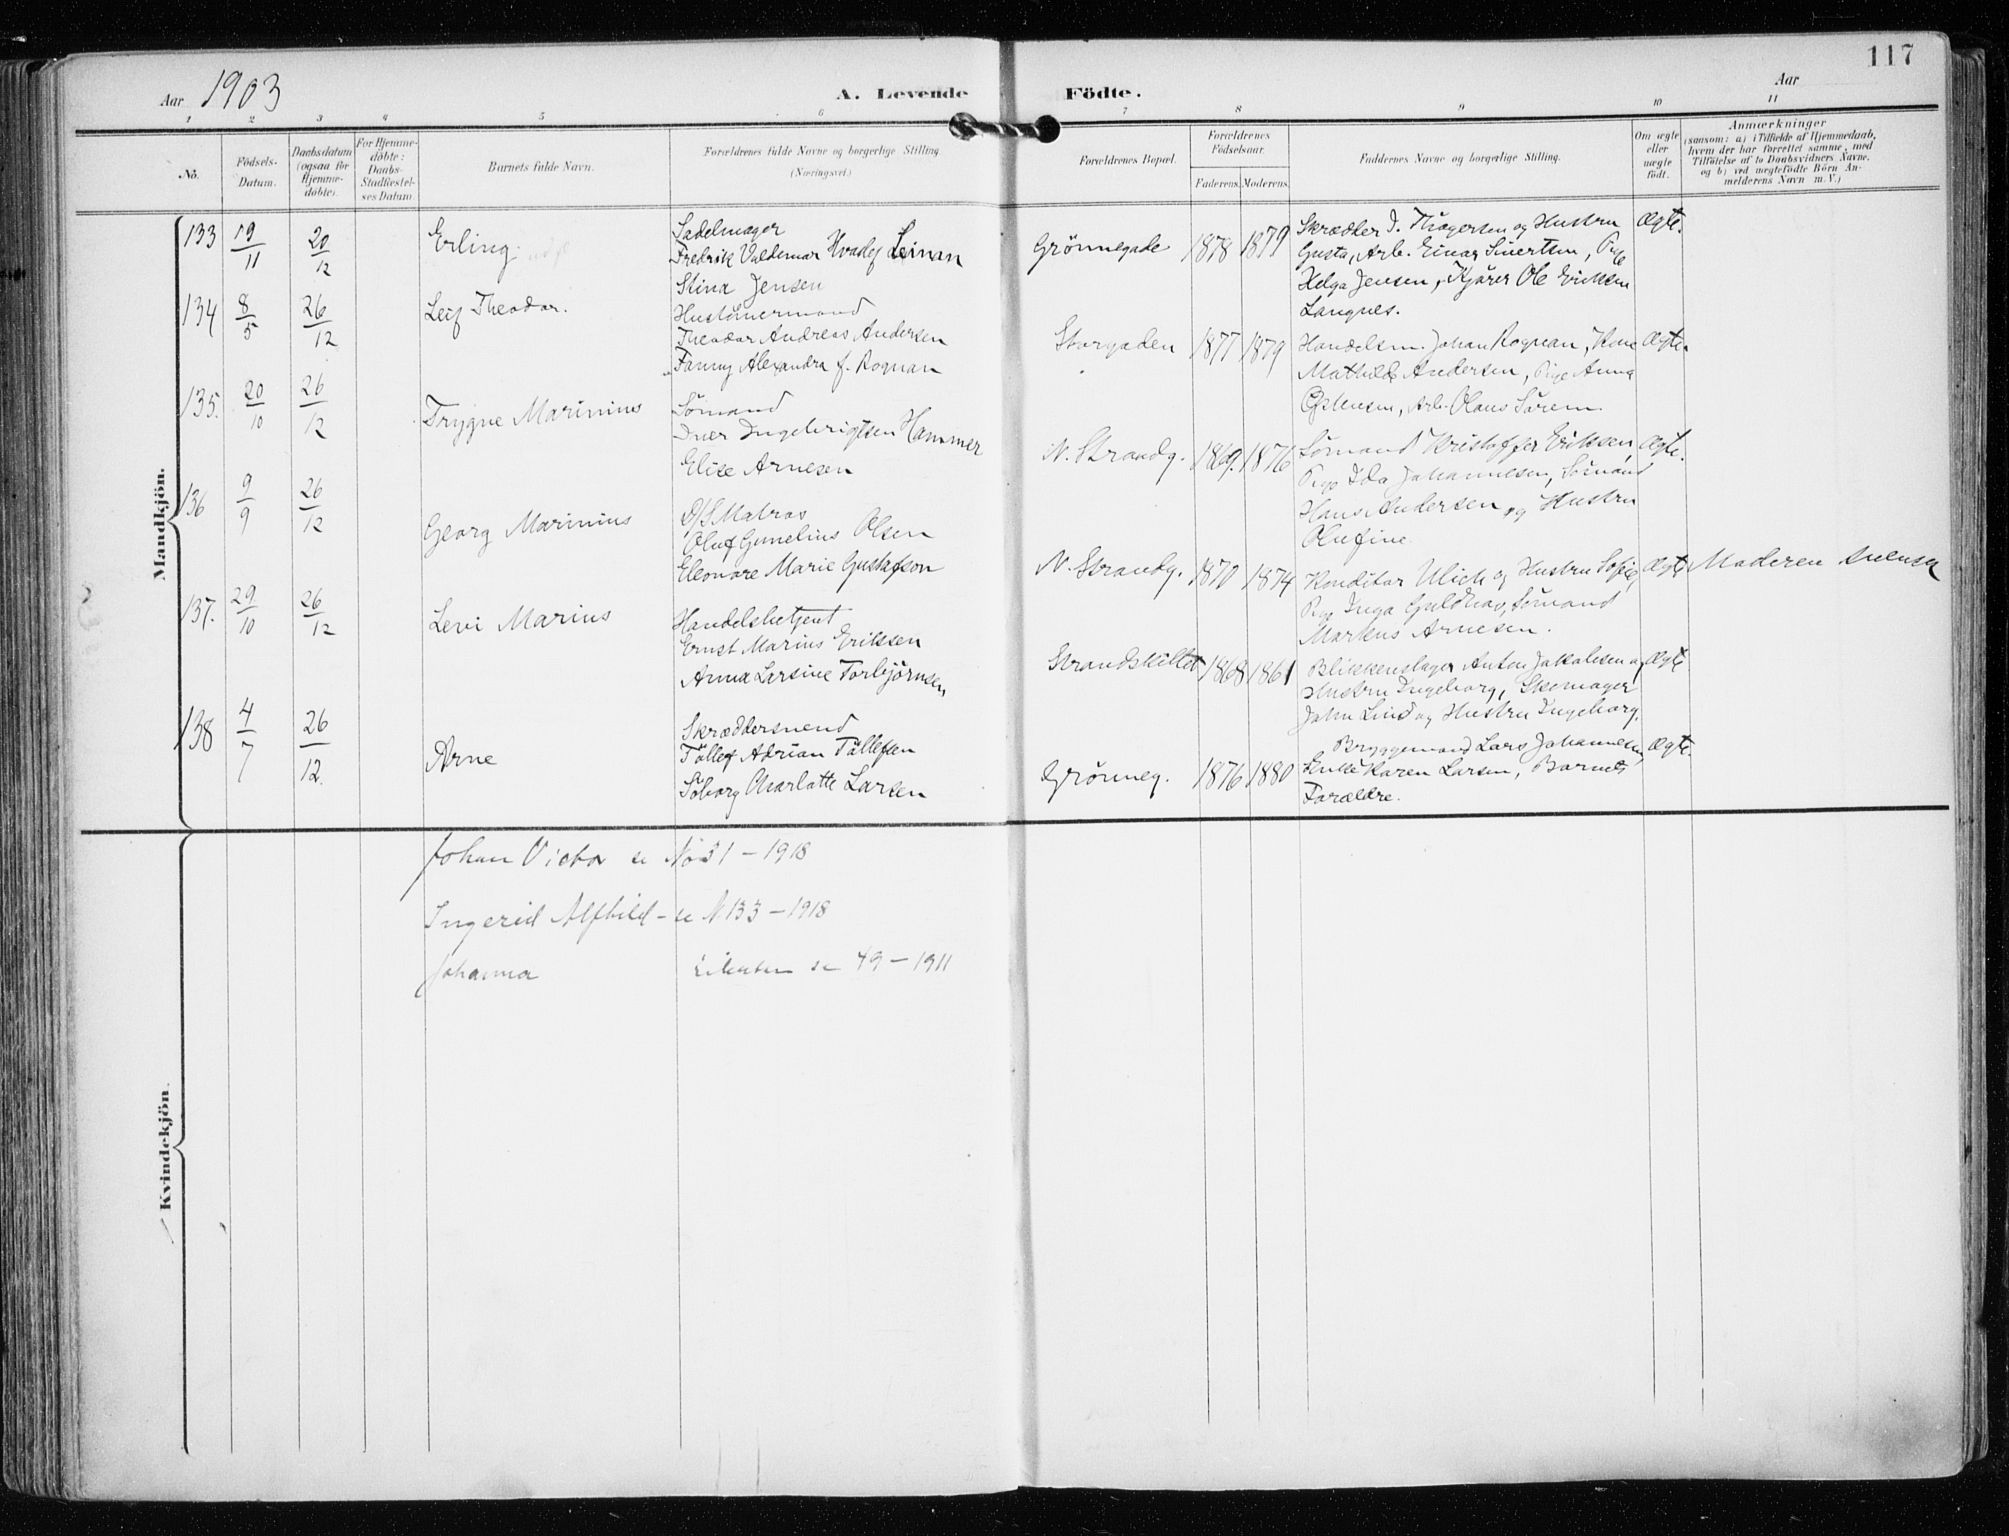 117
Aar 1903 A. Levende Födte. Aar
1 2 3 4 5 6 7 8 9 10 11
Nó. Födsels-Datum. Daabsdatum (ogsaa for Hjemme-döbte). For Hjemme-döbte: Daabs-Stadfæstel-ses Datum Barnets fulde Navn. Forældrenes fulde Navne og borgerlige Stilling. (Næringsvei.) Forældrenes Bopæl. Forældrenes Födselsaar. Faderens. Moderens. Faddernes Navne og borgerlige Stilling. Om ægte eller uægte födt. Anmærkninger (saasom: a) i Tilfælde af Hjemmedaab, hvem der har forrettet samme, med Tilföielse af to Daabsvidners Navne, og b) ved uægtefödte Börn An-melderens Navn m. V.)
Mandkjön.
133 19/11 20/12 Erling
Sadelmager
Fredrik Valdemar Leinan
Stina Jensen
Grönnegade 1878 1879
Skrædder I. Thøgersen og Hustru
Gusta, Arb. Einar Sivertsen, Pige
Helga Jensen, Kjører Ole Eriksen
Langnes.
Ægte.
134 8/5 26/12 Leif Theodor.
Theodor Andreas Andersen
Fanny Alexandra f. Rognan
Storgaden 1877 1879
Handelsm. Johan Rognan, Kone
Mathilde Andersen, Pige Anna
Arb. Olaus Sörem
Ægte
135. 20/10 26/12 Trygve Marinius
Sömand
Iver Ingebrigtsen Hammer
Elise Arnesen
N. Strandg. 1869. 1876
Sømand Kristoffer Eriksen,
Pige Ida Johannesen, Sømand
Hans Andersen og Hustru
Olufine
Ægte.
136 9/9 26/12 Georg Marinius
D/S Matros
Oluf Gunelius Olsen
Eleonore Marie Gustafson
N. Strandg. 1870 1874
Konditor Ulich og Hustru Sofie,
Pige Inga Sömand
Markus Arnesen.
Ægte Moderen svensk
137. 29/10 26/12 Levi Marius
Handelsbetjent
Ernst Marius Eriksen
Anna Larsine Torbjörnsen
Strandskillet 1868 1861
Blikkenslager Anton Jakobsen og
Hustru Ingeborg, Skomager
John Lind og Hustru Ingeborg.
Ægte
138 4/7 26/12. Arne
Skræddersvend
Tollef Adrian Tollefsen
Söborg Charlotte Larsen
Grönneg. 1876 1880
Bryggemand Lars Johannesen,
Enke Karen Larsen, Barnets
Forældre.
Ægte.
Kvindekjön.
Johan Victor se No 31 – 1918
Ingerid Alfhild – se N 133 – 1918
Johanna se 49 – 1911